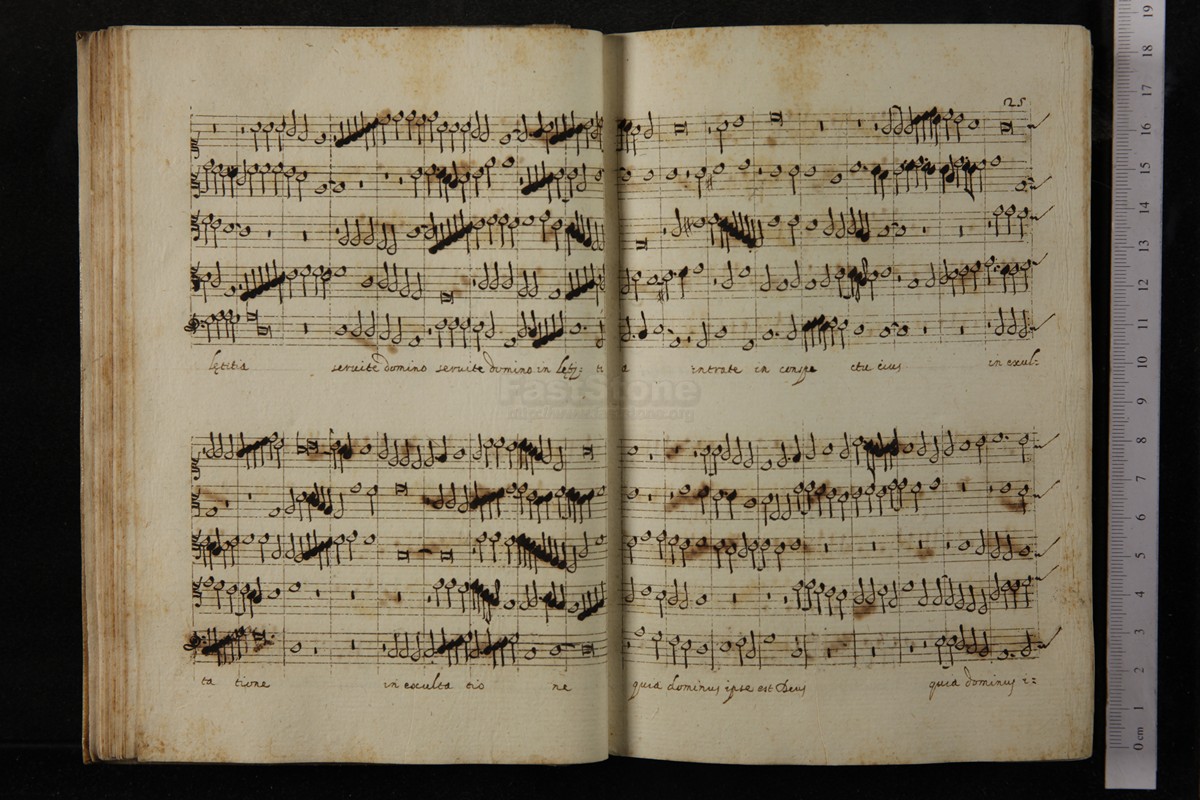 25
lętitia seruite domino seruite domino in lęti: ti a intrate in conspe ctu eius in exul:
FastStone
ta tione in exculta tio ne quia dominus ipse est Deus quia dominus i:
19
18
17
16
15
14
13
12
11
10
9
8
7
6
5
4
3
2
1
0 cm